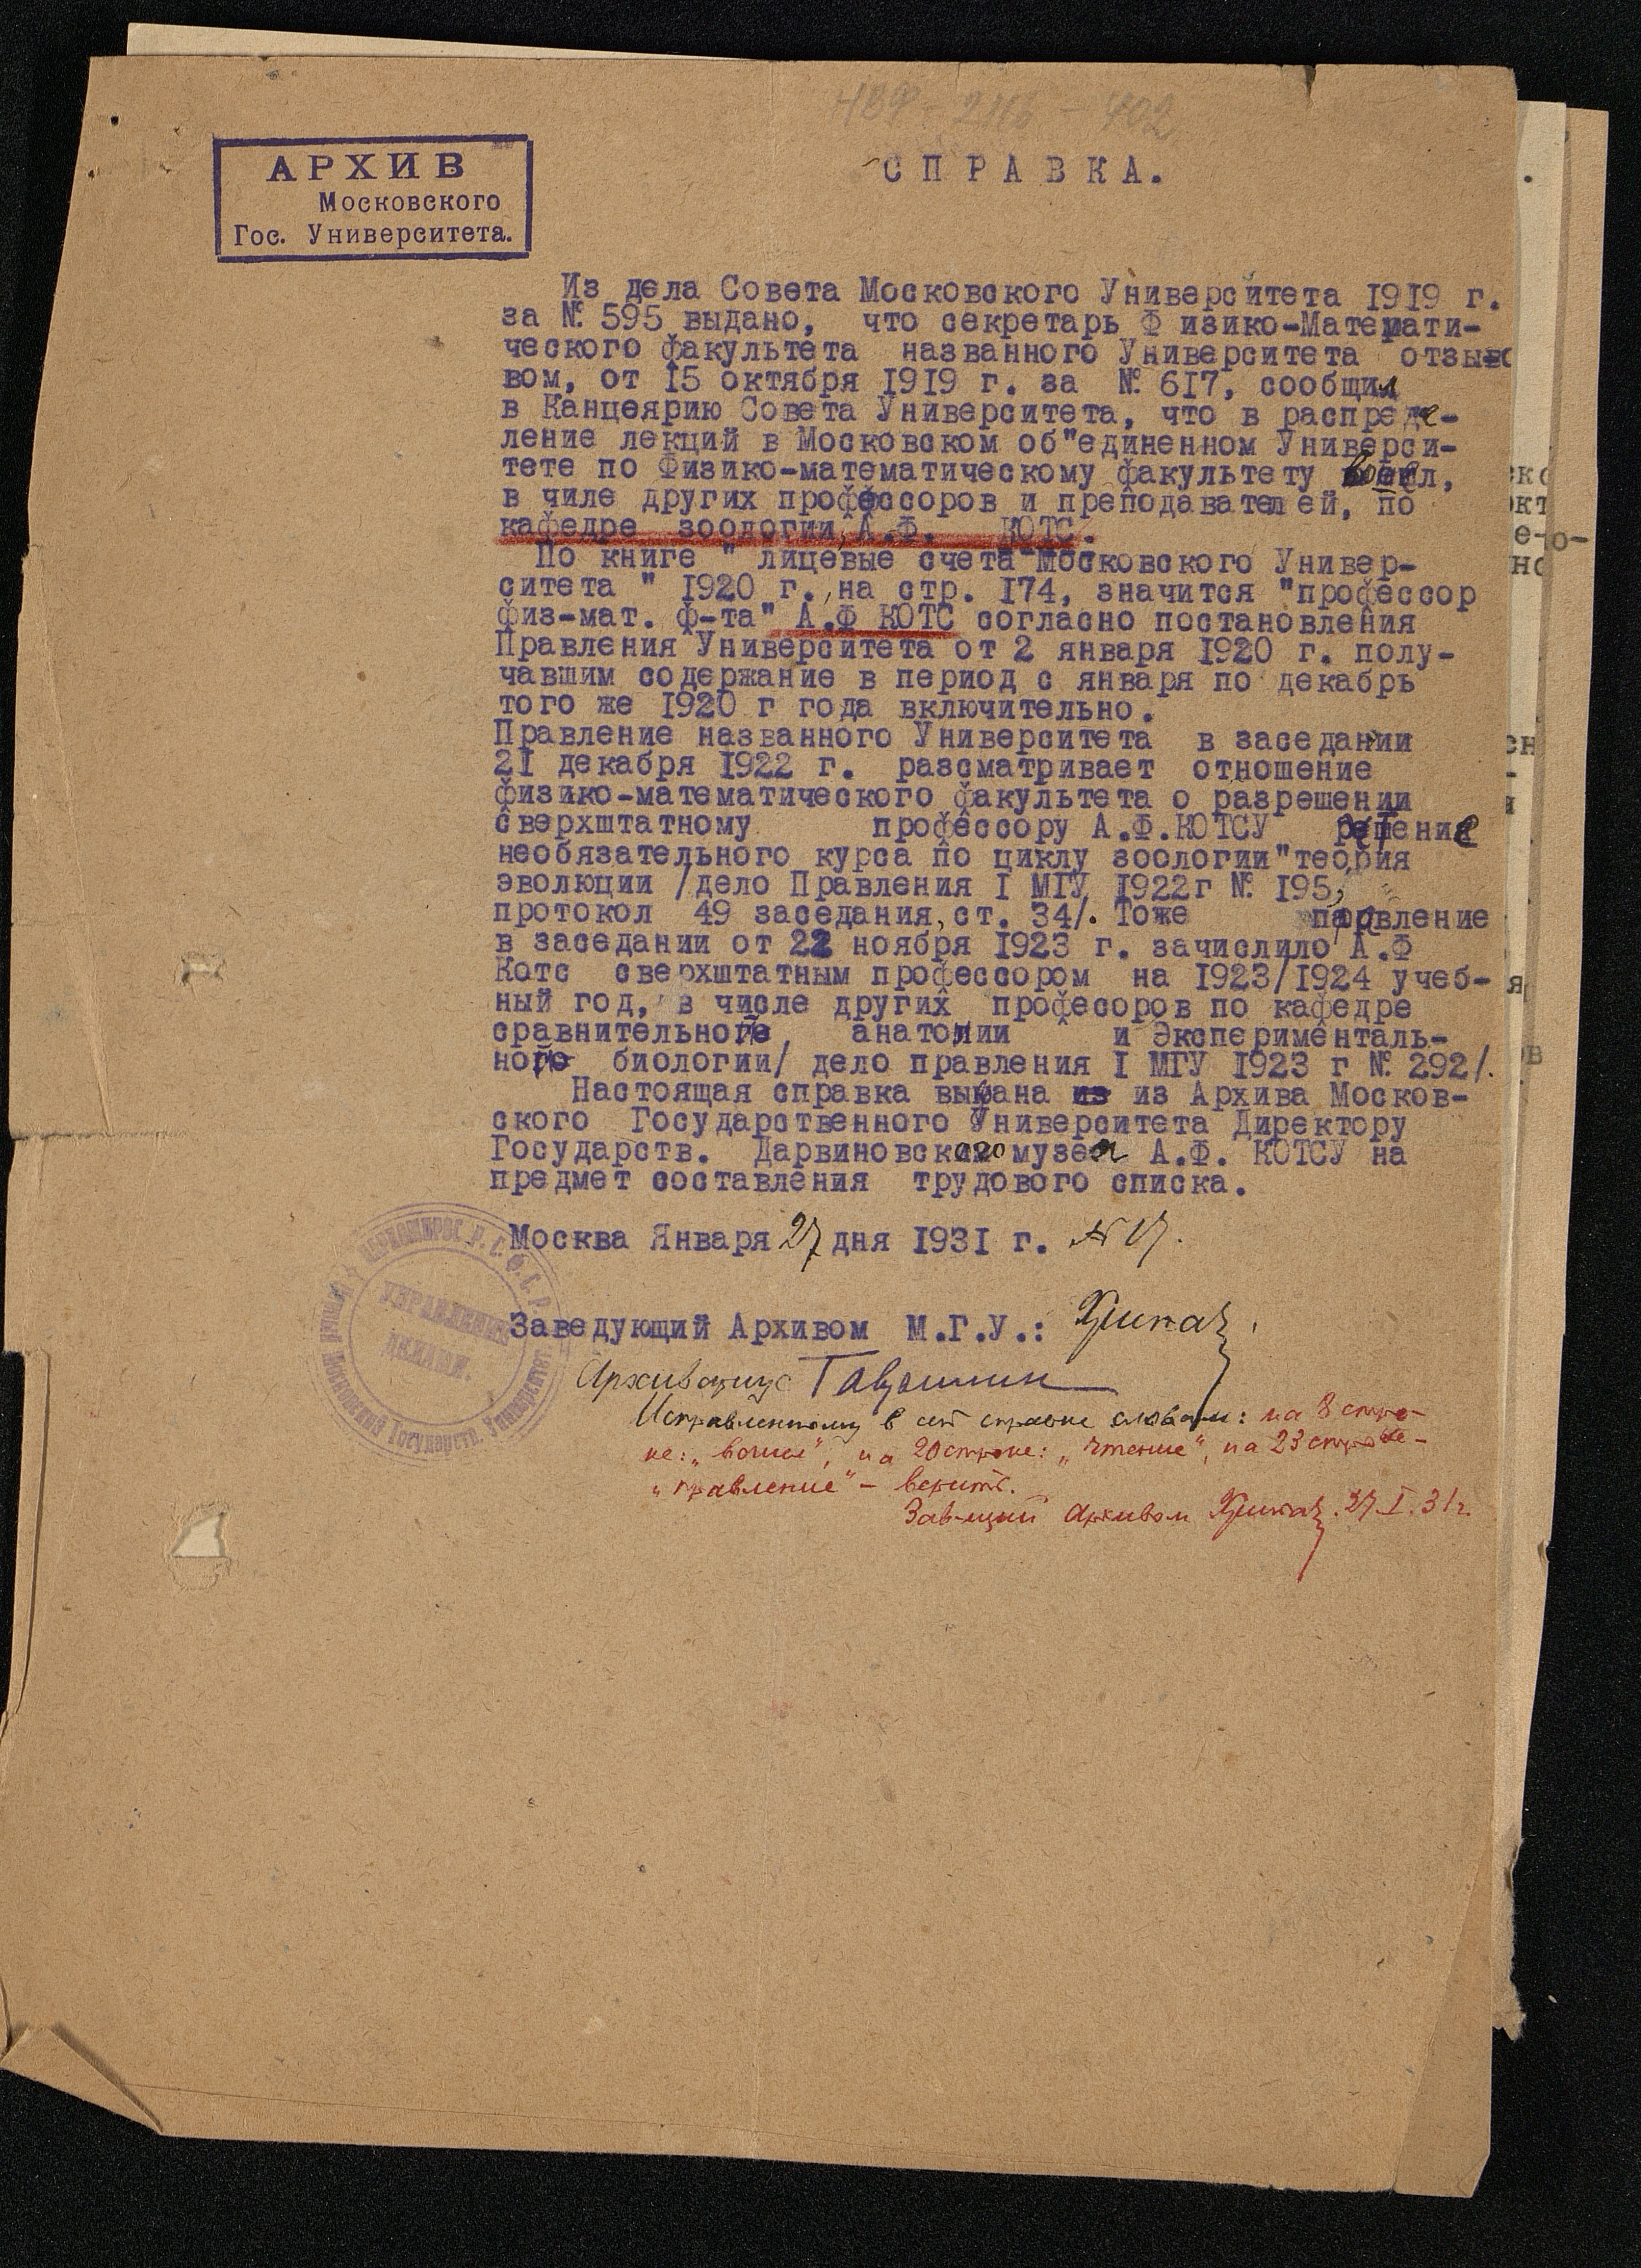 НВФ - 2116 - 402
АРХИВ
Московского
Гос. Университета.
СПРАВКА.
Из дела Совета Московского Университета 1919 г.
за № 595 выдано, что секретарь Ф изико-Математи-
ческого факультета названного Университета отзы
вом, от 15 октября 1919 г. за № 617, сообщил
в Канцеярию Совета Университета, что в распреде-
ление лекций в Московском об"единенном Универси-
тете по Физико-математическому факультету вошел,
в чиле других профессоров и преподавателей, по
кафедре зоологии, А.Ф. КОТС.
По книге " лицевые счета Московского Универ-
ситета " 1920 г., на стр. 174, значится "профессор
физ-мат. ф-та" А.Ф КОТС согласно постановления
Правления Университета от 2 января 1920 г. полу-
чавшим содержание в период с января по декабрь
того же 1920 г года включительно.
Правление названного Университета в заседании
21 декабря 1922 г. разсматривает отношение
физико-математического факультета о разрешении
сверхштатному профессору А.Ф.КОТСУ чтение
необязательного курса по циклу зоологии"теория
эволюции /дело Правления I МГУ 1922г № 195,
протокол 49 заседания, ст. 34/. Тоже правление
в заседании от 22 ноября 1923 г. зачислило А.Ф
Котс сверхштатным профессором на 1923/1924 учеб-
ный год, в числе других професоров по кафедре
сравнительной, анатомии и Эксперименталь-
ной биологии/ дело правления I МГУ 1923 г № 292/.
Настоящая справка выдана из из Архива Москов-
ского Государственного Университета Директору
Государств. Дарвиновского музея А.Ф. КОТСУ на
предмет составления трудового списка.
Москва Января 27 дня 1931 г. № 17.
Заведующий Архивом М.Г.У.:
Архивариус
Исправленному в сей справке словам: на 8 стро-
ке: „вошел", на 20 строке: „чтение", на 23 строке-
„правление" - верить.
Зав-щий Архивом 27.I.31г.
Наркомпрос Р.С.Ф.С.Р.
УПРАВЛЕНИЕ
ДЕЛАМИ.
Московский Государств. Университет